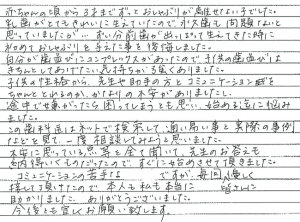 赤ちゃんの頃から3才まずずっとおしゃぶりが離せない子でした。
乳歯がとてもきれいに生えていたので永久歯も問題ないと
思っていましたが… ずい分前が出っぱって生えてきた時に
初めておしゃぶりを与えた事を後悔しました。
自分が歯並びにコンプレックスがあったので子供の歯並びは
きちんとしてあげたい気持ちが強くありました。
子供の性格から、先生や助手の方とコミュニケーションを
ちゃんととれるのか、かなりの不安がありましたし、
途中で嫌がったら困ってしまうとも思い、始める迄に悩み
ました。
この歯科医はネットで検索して、通い易い事と実際の事例
などを見て、一度相談してみようと思いました。
不安に思っている事等を全て聞いて、先生のお答えも
納得いくものだったので、すぐに始めさせて頂きました。
コミュニケーションの苦手な ですが、毎回優しく
接して頂けたので、本人も私も本当に 皆さんに
助かりました。ありがとうございました。
今後とも宜しくお願い致します。